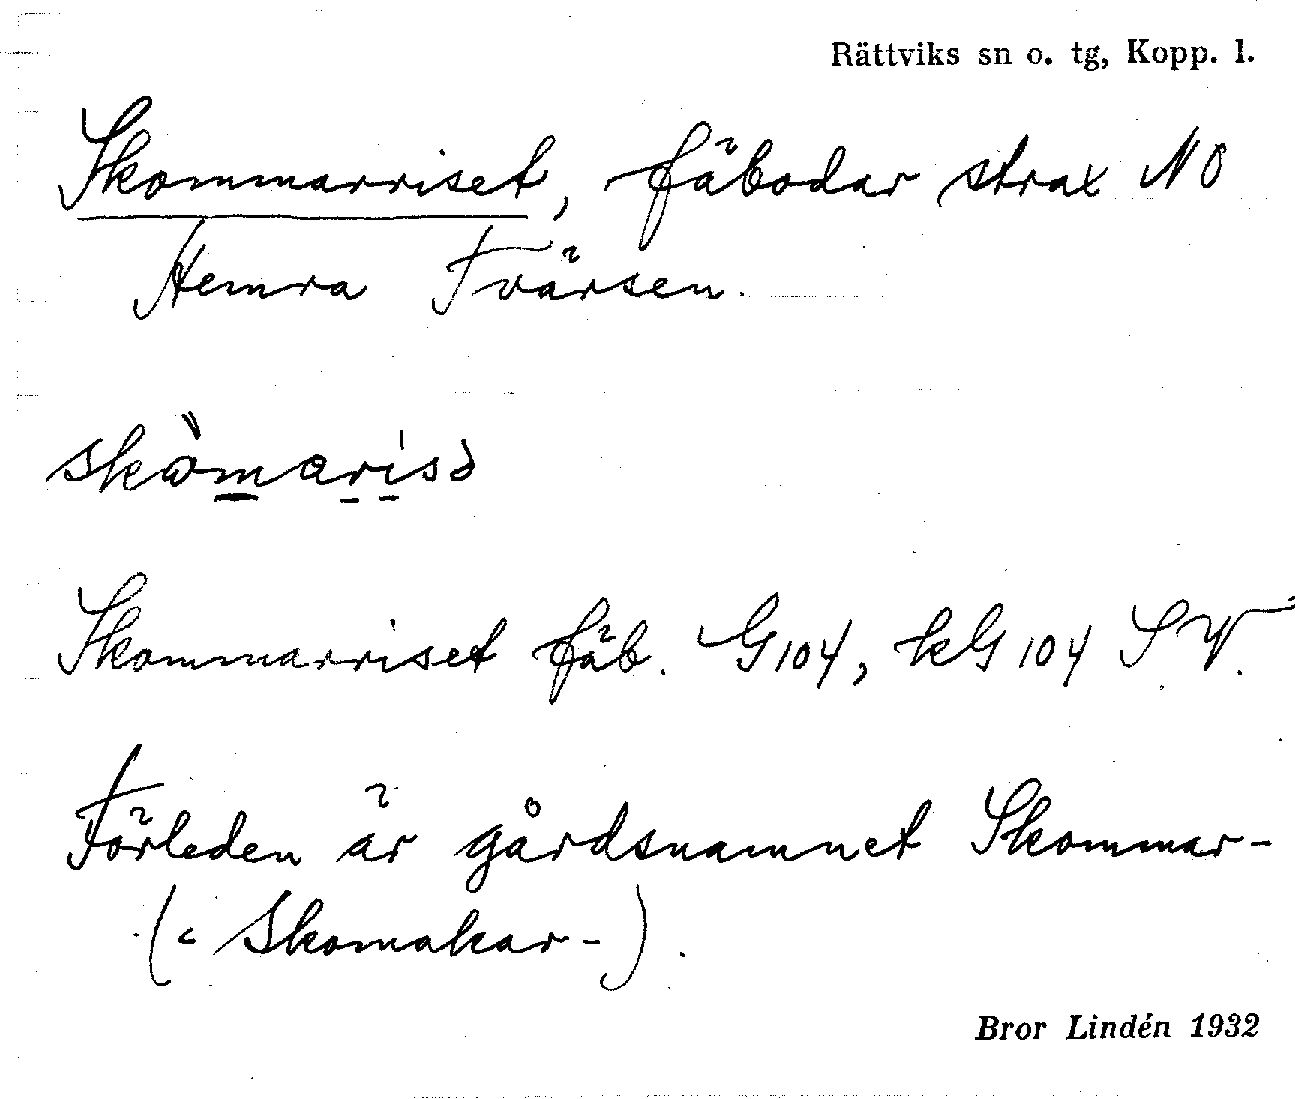 Rättviks sn o. tg, Kopp. l.
Skommarriset, fäbodar strax NO
Hemra Tvärsen.
skòmarisə
Skommarriset fäb. G104, kG 104 SV.
Förleden är gårdsnamnet Skommar-
(< Skomakar-).
Bror Lindén 1932